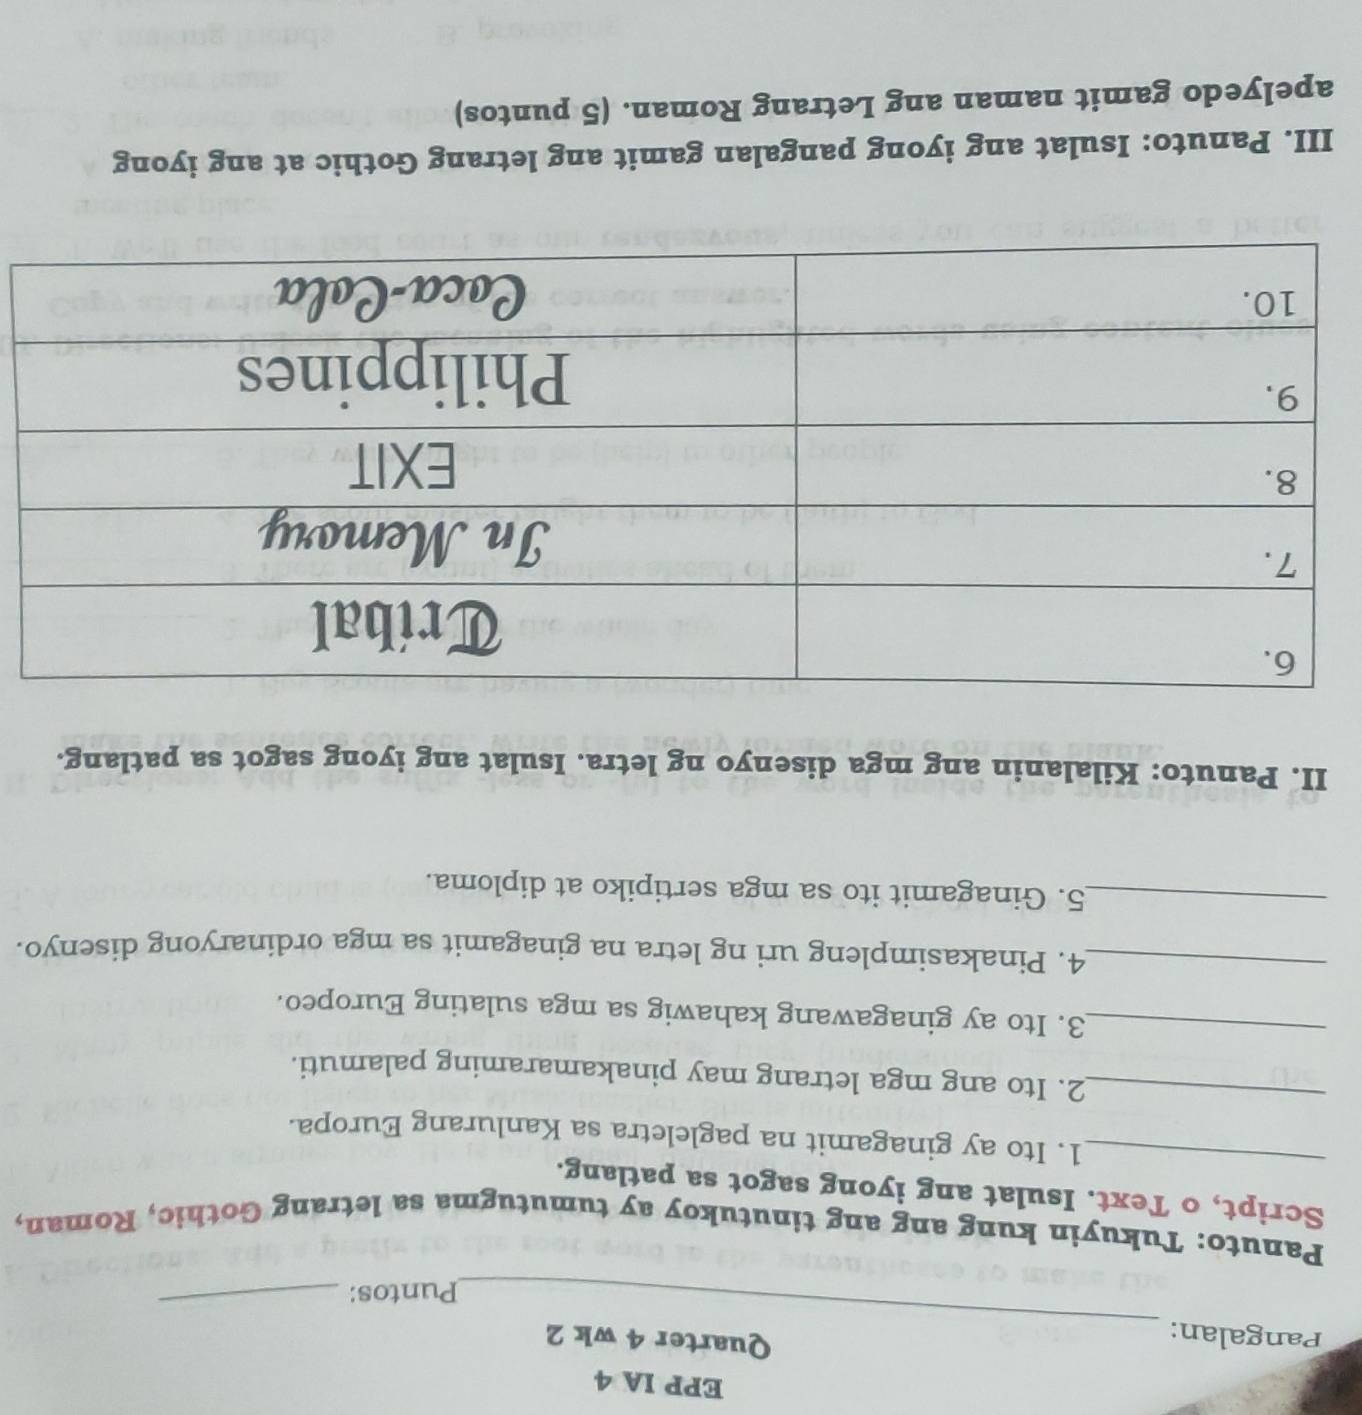 EPP IA 4
Quarter 4 wk 2
Pangalan: ____________________Puntos: __________
Panuto: Tukuyin kung ang ang tinutukoy ay tumutugma sa letrang Gothic, Roman,
Script, o Text. Isulat ang iyong sagot sa patlang.
__________1. Ito ay ginagamit na pagleletra sa Kanlurang Europa.
__________2. Ito ang mga letrang may pinakamaraming palamuti.
__________3. Ito ay ginagawang kahawig sa mga sulating Europeo.
__________4. Pinakasimpleng uri ng letra na ginagamit sa mga ordinaryong disenyo.
__________5. Ginagamit ito sa mga sertipiko at diploma.
II. Panuto: Kilalanin ang mga disenyo ng letra. Isulat ang iyong sagot sa patlang.
6. Tribal
7. In Memory
8. EXIT
9. Philippines
10. Coca-Cola
III. Panuto: Isulat ang iyong pangalan gamit ang letrang Gothic at ang iyong
apelyedo gamit naman ang Letrang Roman. (5 puntos)